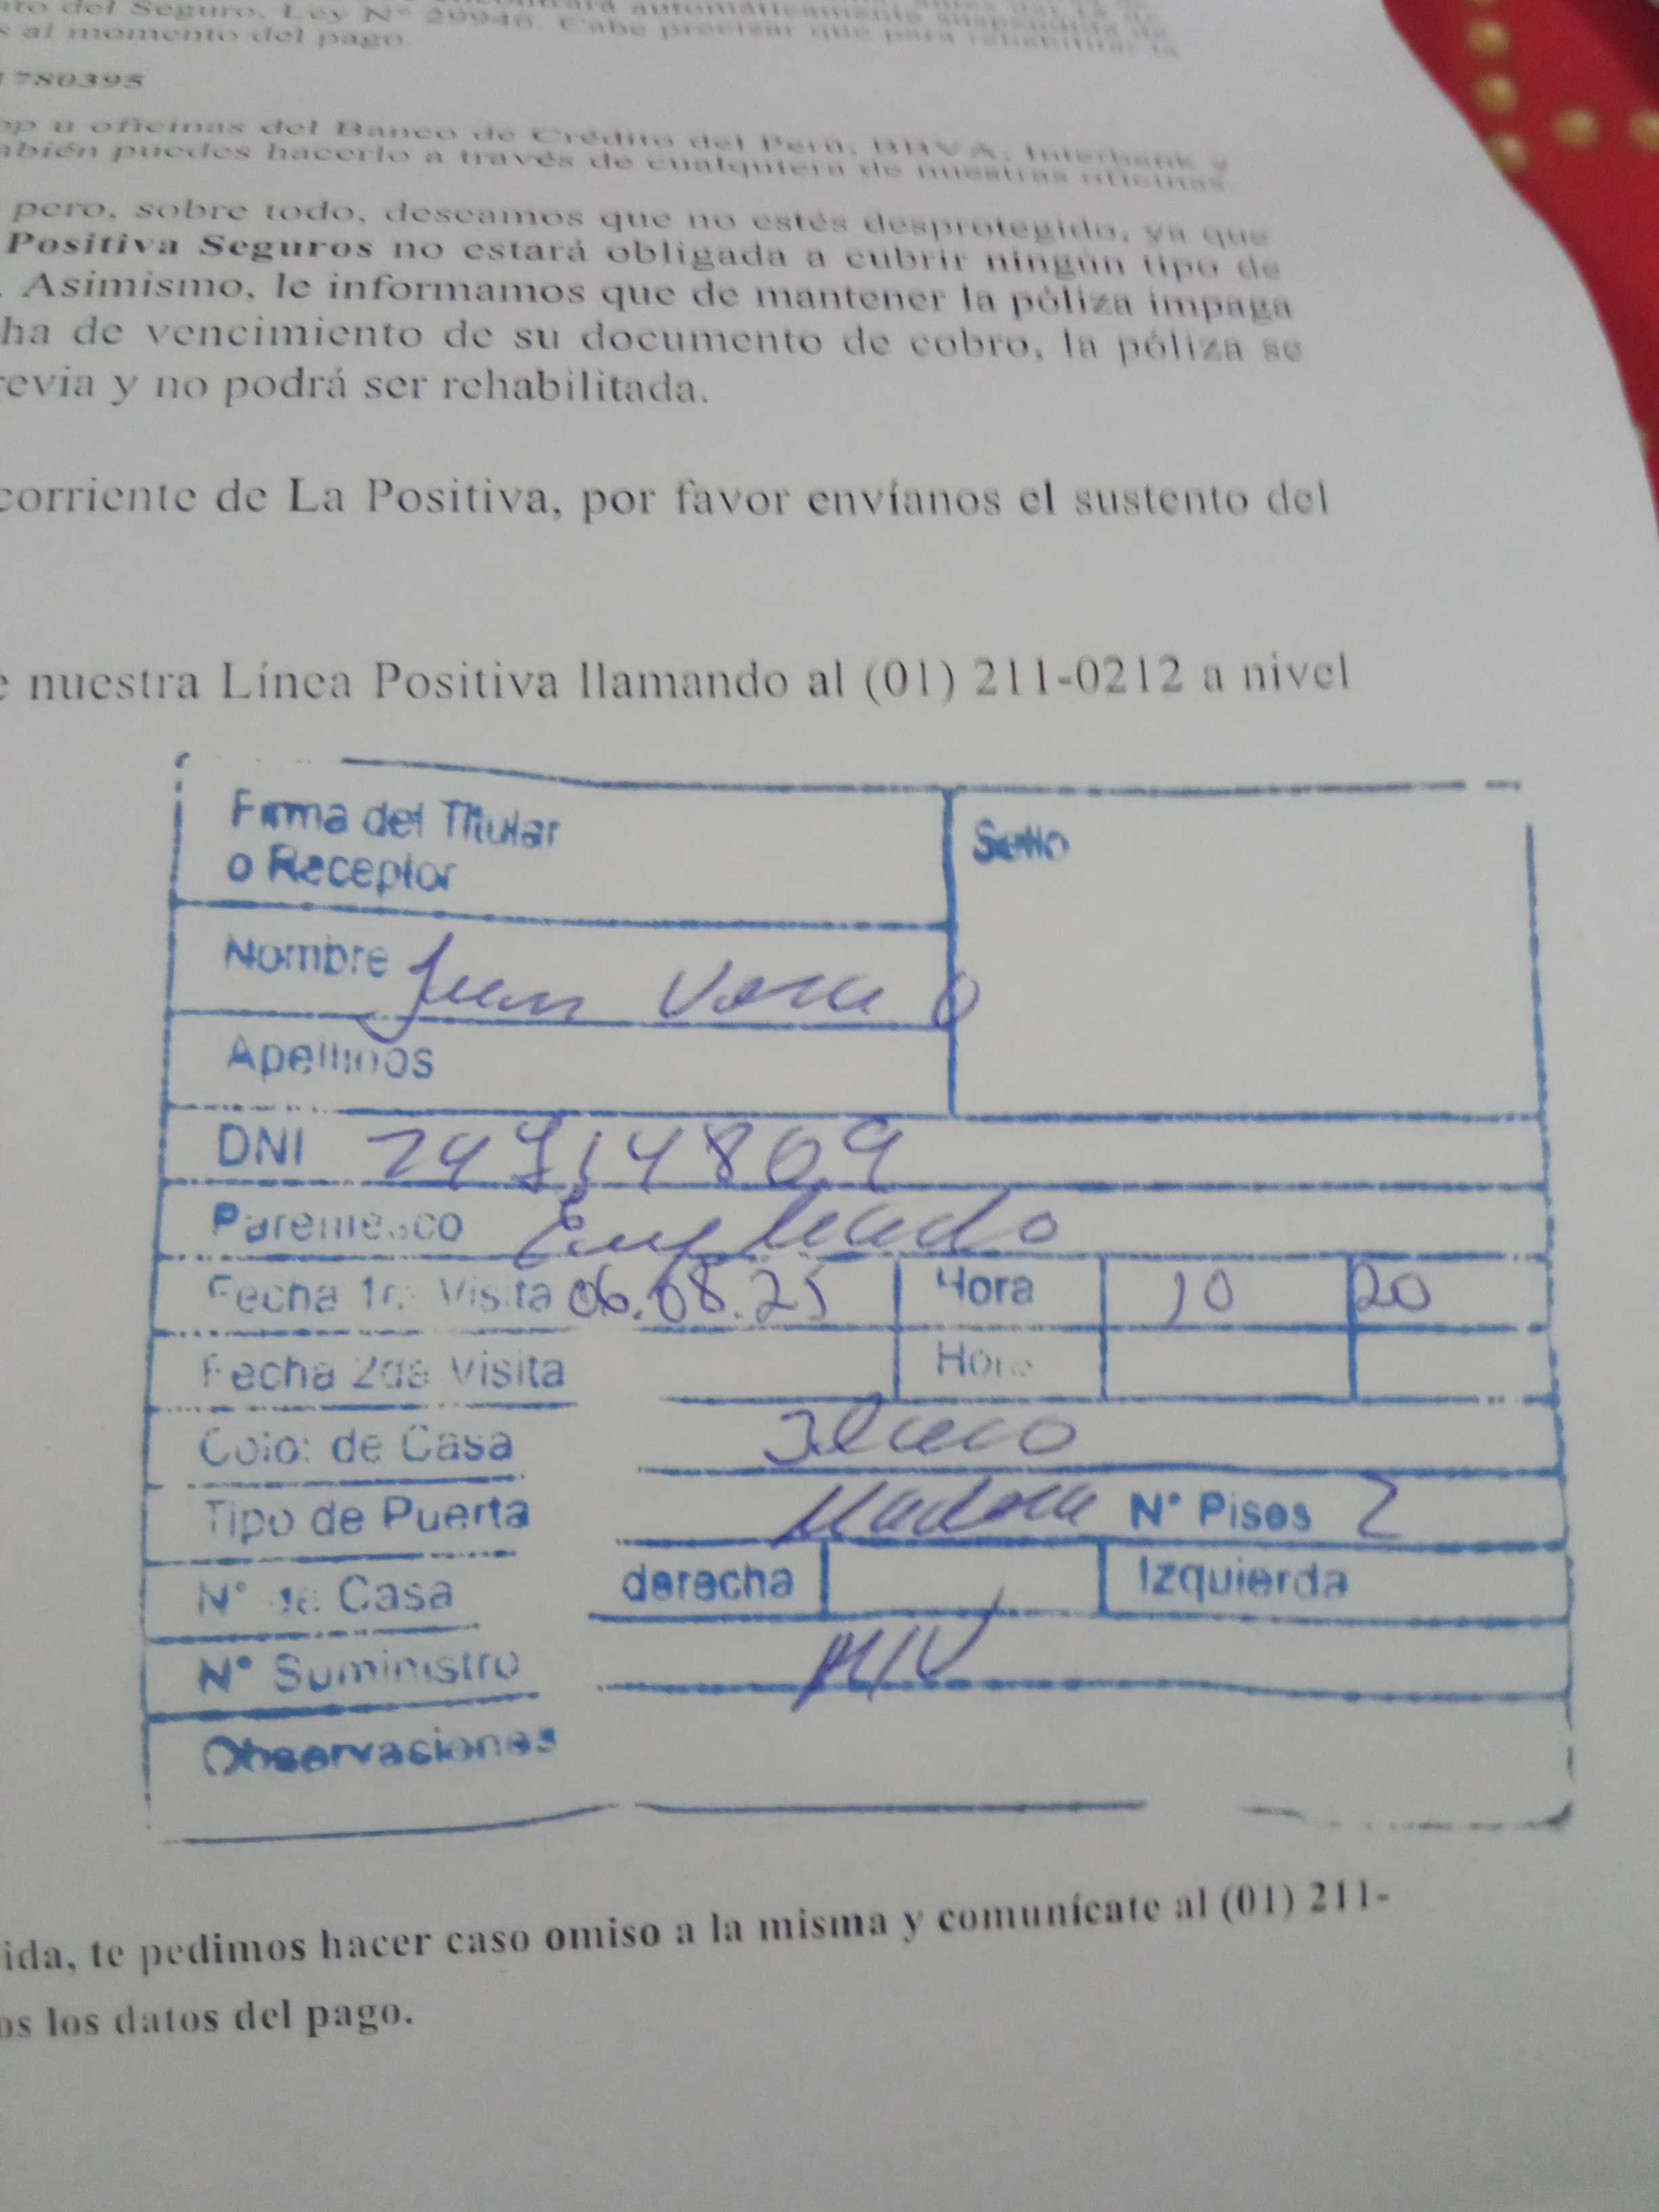 to del Seguro, Ley N° 29946. Cabe precisar que para rehabilitar la
s al momento del pago.
1780395
op u oficinas del Banco de Crédito del Perú, BBVA, Interbank y
mbién puedes hacerlo a través de cualquiera de nuestras oficinas.
pero, sobre todo, deseamos que no estés desprotegido, ya que
Positiva Seguros no estará obligada a cubrir ningún tipo de
. Asimismo, le informamos que de mantener la póliza impaga
ha de vencimiento de su documento de cobro, la póliza se
revia y no podrá ser rehabilitada.
corriente de La Positiva, por favor envíanos el sustento del
e nuestra Línea Positiva llamando al (01) 211-0212 a nivel
Firma del Titular
o Receptor
Sello
Nombre Juan
Apellidos
DNI
Parentesco Empleado
Fecha 1ra Visita 06.08.25 Hora 10 20
Fecha 2da Visita Hora
Color de Casa
Tipo de Puerta Madera N° Pisos 2
N° de Casa derecha Izquierda
N° Suministro
Observaciones
ida, te pedimos hacer caso omiso a la misma y comunícate al (01) 211-
os los datos del pago.